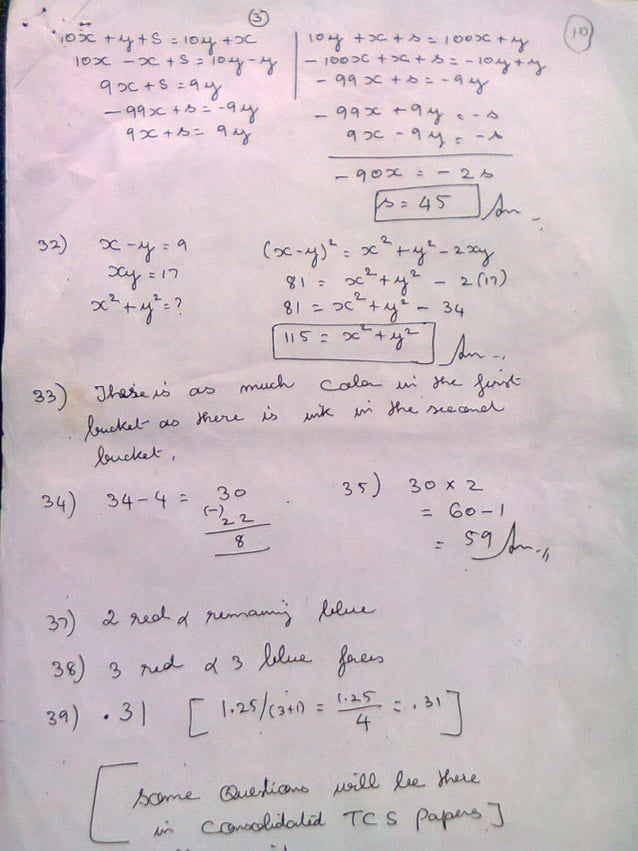 3
10
10x + y + s = 10y + x
10x - x + s = 10y - y
9x + s = 9y
- 99x + s = -9y
9x + s = 9y
10y + x + s = 100x + y
- 100x + x + s = - 10y + y
- 99x + s = - 9y
- 99x + 9y = - s
9x - 9y = - s
- 90x = - 2s
s = 45 Ans
32) x - y = 9
xy = 17
x² + y² = ?
(x - y)² = x² + y² - 2xy
81 = x² + y² - 2(17)
81 = x² + y² - 34
115 = x² + y² Ans
33) There is as much Cola in the first
bucket as there is ink in the second
bucket.
34) 34 - 4 = 30
(-) 22
8
35) 30 × 2
= 60 - 1
= 59 Ans
37) 2 red & remaining blue
38) 3 red & 3 blue faces
39) .31 [ 1.25/(3+1) = 1.25/4 = .31 ]
[ Some Questions will be there
in Consolidated TCS Papers ]